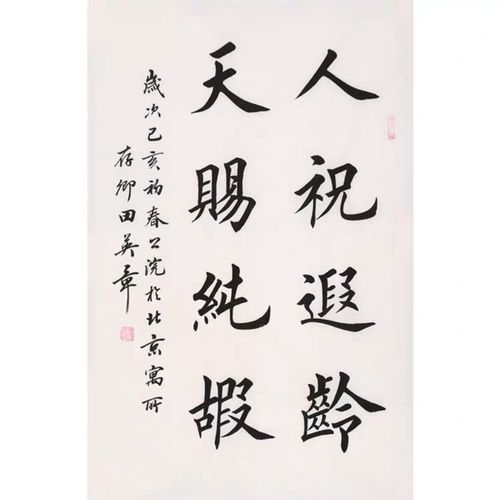 人祝遐齡
天賜純嘏
歲次己亥初春公浣於北京寓所
存卿田英章